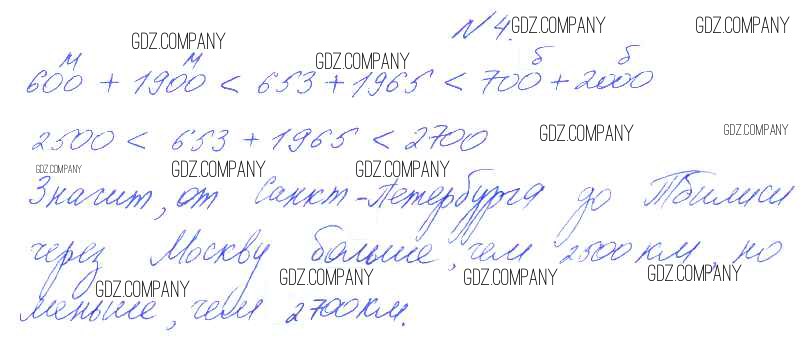 N 4.
GDZ.COMPANY GDZ.COMPANY GDZ.COMPANY
GDZ.COMPANY
м м б б
600 + 1900 < 653 + 1965 < 700 + 2000
2500 < 653 + 1965 < 2700
GDZ.COMPANY GDZ.COMPANY
GDZ.COMPANY GDZ.COMPANY GDZ.COMPANY
Значит, от Санкт-Петербурга до Тбилиси
через Москву больше, чем 2500 км, но
GDZ.COMPANY GDZ.COMPANY GDZ.COMPANY GDZ.COMPANY
меньше, чем 2700 км.